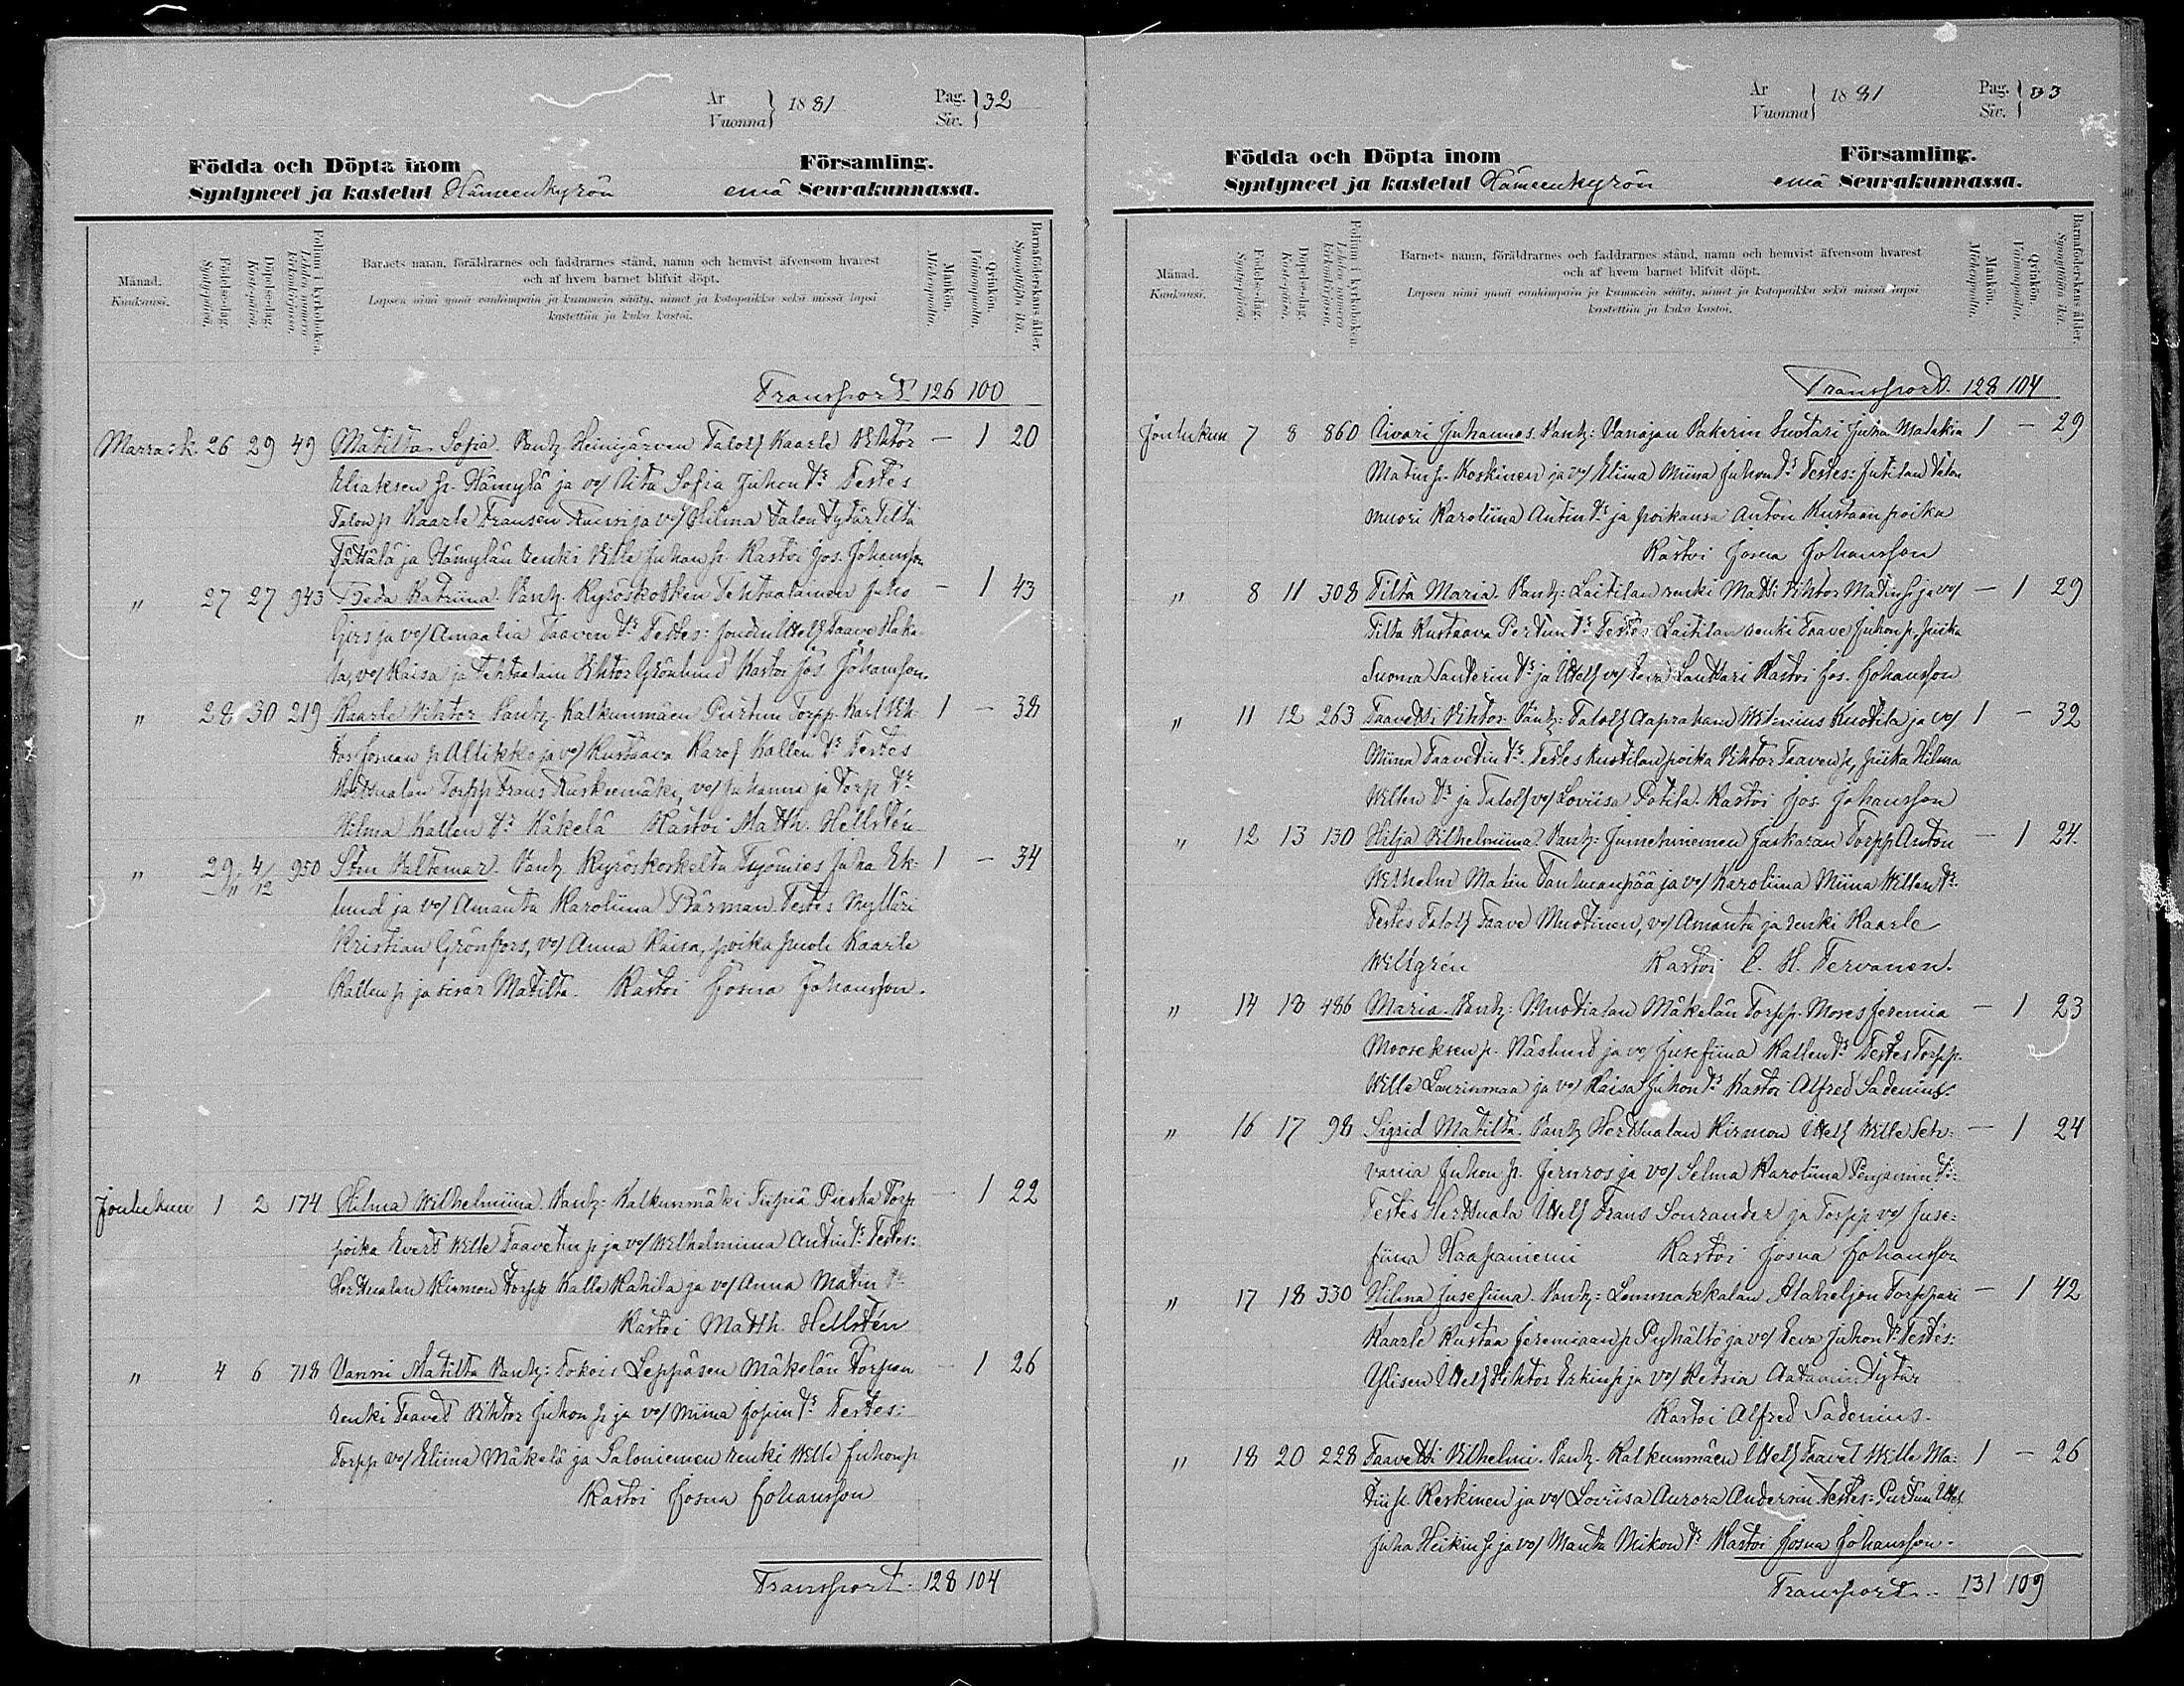 År
Vuonna } 1881
Pag.
Siv. } 32
Födda och Döpta inom Församling.
Syntyneet ja kastetut Hämeenkyrön emä Seurakunnassa.
Månad.
Kuukausi.
Födelsedag.
Syntypäivä.
Döpelsedag.
Kastepäivä.
Folium i kyrkoboken.
Lehden numero kirkonkirjassa.
Barnets namn, föräldrarnes och faddrarnes stånd, namn och hemvist äfvensom hvarest
och af hvem barnet blifvit döpt.
Lapsen nimi ynnä vanhempain ja kummein sääty, nimet ja kotopaikka sekä missä lapsi
kastettiin ja kuka kastoi.
Mankön.
Miehenpuolia.
Qvinkön.
Vaimonpuolia.
Barnaföderskans ålder.
Synnyttäjän ikä.
Transport 126 100
Marrask. 26 29 49 Matilta Sofia. Vanh. Heinijärven Taloll. Kaarle Vihtor — 1 20
Eliaksen p. Hämylä ja vo/ Aita Sofia Juhon tr. Testes
Talon p. Kaarle Fransen ja vo/ Hilma Talon tytär Tilta
ja Hämylän renki Ville Juhan p. Kastoi Jos. Johansson
" 27 27 943 Feda Katriina. Vanh. Kyröskosken Tehtaalainen Juho — 1 43
Girs ja vo/ Amaalia Taaven tr. Testes: Taave
vo/ Kaisa ja Tehtaalain Vihtor Grönlund Kastoi Jos. Johansson.
" 28 30 219 Kaarle Vihtor Vanh. Kalkunmäen Purtun Torpp. Karl Vih- 1 — 38
tor Josuan p. Allikko ja vo/ Kustaava Karol. Kallen tr. Testes
Torpp. Frans Ruskeemäki, vo/ Johanna ja Torp. tr.
Hilma Kallen tr. Käkelä Kastoi Matth. Hellstén
" 29/11 4/12 950 Sten Valtemar. Vanh. Kyröskoskelta Työmies Juha Ek- 1 — 34
lund ja vo/ Amanta Karoliina Bärman. Testes Mylläri
Kristian Grönfors, vo/ Anna Kaisa, poika puoli Kaarle
Kallen p. ja sisar Matilta. Kastoi Josua Johansson.
Joulukun 1 2 174 Hilma Wilhelmiina. Vanh: Kalkunmäki Piiska Torp — 1 22
poika Evert Wille Taavetin p ja vo/ Wilhelmiina Antin tr. Testes:
Herttualan Kirmon torpp Kalle Rahila ja vo/ Anna Matin tr.
Kastoi Matth. Hellstén
" 4 6 718 Vanni Matilta Vanh: Tokois Leppäsen Mäkelän Torpan — 1 26
renki Taavet Vihtor Juhon p. ja vo/ Miina Jopin tr. Testes:
Torpp vo/ Eliina Mäkelä ja Saloniemen renki Wille Juhon p
Kastoi Josua Johansson
Transport. 128 104
År
Vuonna } 1881
Pag.
Siv. } 33
Födda och Döpta inom Församling.
Syntyneet ja kastetut Hämeenkyrön emä Seurakunnassa.
Månad.
Kuukausi.
Födelsedag.
Syntypäivä.
Döpelsedag.
Kastepäivä.
Folium i kyrkoboken.
Lehden numero kirkonkirjassa.
Barnets namn, föräldrarnes och faddrarnes stånd, namn och hemvist äfvensom hvarest
och af hvem barnet blifvit döpt.
Lapsen nimi ynnä vanhempain ja kummein sääty, nimet ja kotopaikka sekä missä lapsi
kastettiin ja kuka kastoi.
Mankön.
Miehenpuolia.
Qvinkön.
Vaimonpuolia.
Barnaföderskans ålder.
Synnyttäjän ikä.
Transport. 128 104
Joulukun 7 8 860 Aivari Juhannes. Vanh: Vanajan Pakerin Suotari Juha 1 — 29
Matin p. Koskinen ja vo/ Eliina Miina Juhon tr. Testes: Jutilan talon
muori Karoliina Antin tr. ja poikansa Anton Kustaan poika
Kastoi Josua Johansson
" 8 11 308 Tilta Maria. Vanh: Laitilan renki Matti Vihtor Matin p. ja vo/ — 1 29
Tilta Kustaava Pertun tr. Testes Laitilan renki Taave Juhon p., piika
Suoma Santerin tr. ja Itsell. vo/ Eeva Lauttari Kastoi Jos. Johansson
" 11 12 263 Taavetti Vihtor. Vanh: Taloll. Aaprahami Wilenius Knotila ja vo/ 1 — 32
Miina Taavetin tr. Testes Knotilan poika Vihtor Taaven p, piika Hilma
Willen tr. ja Taloll vo/ Loviisa Potila. Kastoi Jos. Johansson
" 12 13 130 Hilja Vilhelmiina. Vanh: Jumesniemen Jaskaran Torpp Anton — 1 24.
Wilhelm Matin Tanhuanpää ja vo/ Karoliina Miina Willen tr.
Testes Taloll Taave Muotinen, vo/ Amanta ja renki Kaarle
Willgrén Kastoi C. H. Tervanen.
" 14 18 486 Maria. Vanh: Muotialan Mäkelän Torpp. Moses Jeremia — 1 23
Mooseksen p. Näslund ja vo/ Jusefiina Kallen tr. Testes Torpp.
Wille Laurinmaa ja vo/ Kaisa Juhon tr. Kastoi Alfred Sadenius.
" 16 17 98 Sigrid Matilta. Vanh Herttualan Kirmon Itsell Wille Seh- — 1 24
vania Juhon p. Jernros ja vo/ Selma Karoliina Penjamin tr.
Testes Herttuala Itsell Frans Sourander ja Torpp vo/ Juse-
fiina Haapaniemi Kastoi Josua Johansson
" 17 18 330 Hilma Jusefiina. Vanh: Lemmakkalan Torppari — 1 42
Kaarle Kustaa Jeremiaan p. Pyhältö ja vo/ Eeva Juhon tr. Testes:
Ylisen Itsell Vihtor Erkin p ja vo/ Retria Aatamin Tytär
Kastoi Alfred Sadenius.
" 18 20 228 Taavetti Vilhelmi. Vanh. Kalkunmäen Itsell Taavet Wille Ma- 1 — 26
tin p. Keskinen ja vo/ Loviisa Aurora Anderin. Testes: Purtun Itsel
Juha Heikin p. ja vo/ Manta Mikon tr. Kastoi Josua Johansson.
Transport. 131 109